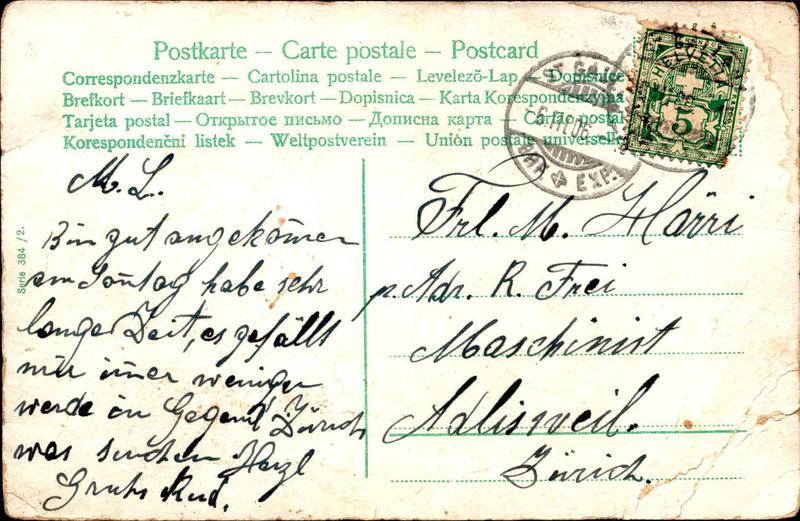 Postkarte — Carte postale — Postcard
Correspondenzkarte — Cartolina postale — Levelező-Lap — Dopisnice
Brefkort — Briefkaart — Brevkort — Dopisnica — Karta Korespondencyjna
Tarjeta postal — Открытое письмо — Дописна карта — Cartão postal
Korespondenční listek — Weltpostverein — Union postale universelle
HELVETIA
5
ST. GALLEN
5.III.06.
EXP.
Serie 384/2.
M. L.
Bin gut angekomen
am Sontag habe sehr
lange Zeit, es gefällt
mir imer weniger
werde in Gegend Zürich
was suchen Herzl
Gruss Rud.
Frl. M. Härri
p. Adr. R. Frei
Maschinist
Adlisweil.
Zürich.